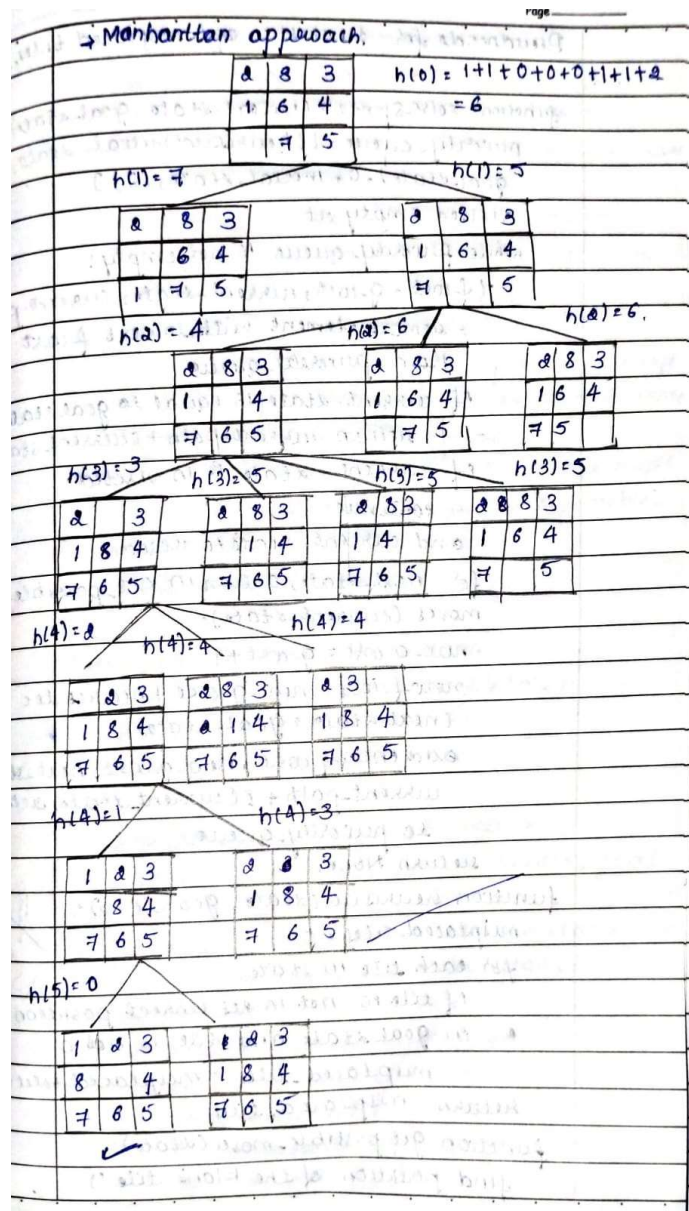 Page
→ Manhanttan approach.
2 8 3
1 6 4
7 5
h(0) = 1+1+0+0+0+1+1+2
= 6
h(1) = 7
h(1) = 5
2 8 3
6 4
1 7 5
2 8 3
1 6 4
7 5
h(2) = 4
h(2) = 6
h(2) = 6.
2 8 3
1 4
7 6 5
2 8 3
1 6 4
7 5
2 8 3
1 6 4
7 5
h(3) = 3
h(3) = 5
h(3) = 5
h(3) = 5
2 3
1 8 4
7 6 5
2 8 3
1 4
7 6 5
2 8 3
1 4
7 6 5
2 8 8 3
1 6 4
7 5
h(4) = 2
h(4) = 4
h(4) = 4
2 3
1 8 4
7 6 5
2 8 3
2 1 4
7 6 5
2 3
1 8 4
7 6 5
h(4) = 1
h(4) = 3
1 2 3
8 4
7 6 5
2 3
1 8 4
7 6 5
h(5) = 0
1 2 3
8 4
7 6 5
1 2 3
1 8 4
7 6 5